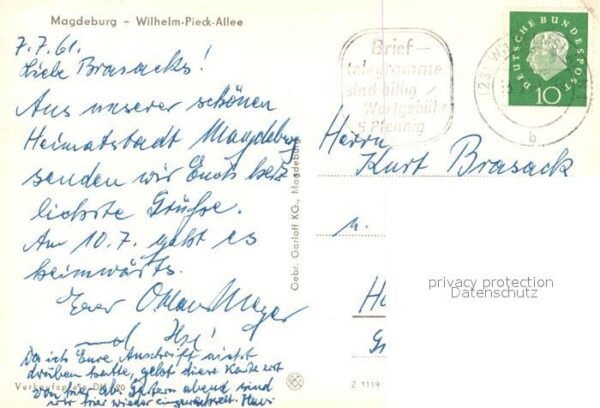 Magdeburg – Wilhelm-Pieck-Allee
7.7.61.
Liebe Brasacks!
Aus unserer schönen
Heimatstadt Magdeburg
senden wir Euch herz
lichste Grüße.
Am 10.7. geht es
heimwärts.
Euer Meyer
und
Da ich Eure Anschrift nicht
drüben hatte, geht diese Karte erst
von hier ab. Gestern abend sind
wir hier wieder eingetrudelt.
Verkaufspreis DM
Gebr. Garloff KG., Magdeburg
Z 1119
Brief-
telegramme
sind billig
Wortgebühr
5 Pfennig
(23)
b
DEUTSCHE BUNDESPOST
10
Herrn
Kurt Brasack
u.
privacy protection
Datenschutz